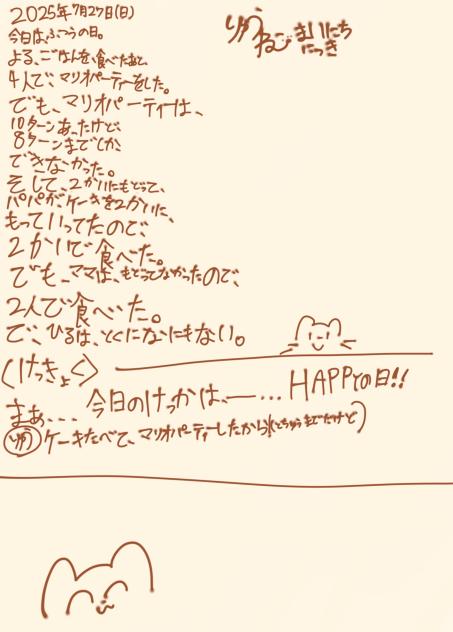 2025年7月27日(日)
りゅう
ねこ まいにち
にっき
今日は、ふつうの日。
よる、ごはんを、食べたあと、
4人で、マリオパーティーをした。
でも、マリオパーティーは、
10ターンあったけど、
8ターンまでしか、
できなかった。
そして、2かいにもどって、
パパが、ケーキを2かいに、
もっていってたので、
2かいで食べた。
でも、ママは、もどってなかったので、
2人で食べた。
で、ひるは、とくになにもない。
〈けっきょく〉
まぁ... 今日のけっかは、ー... HAPPYの日!!
りゆう ケーキたべて、マリオパーティーしたから(とちゅうまでだけど)